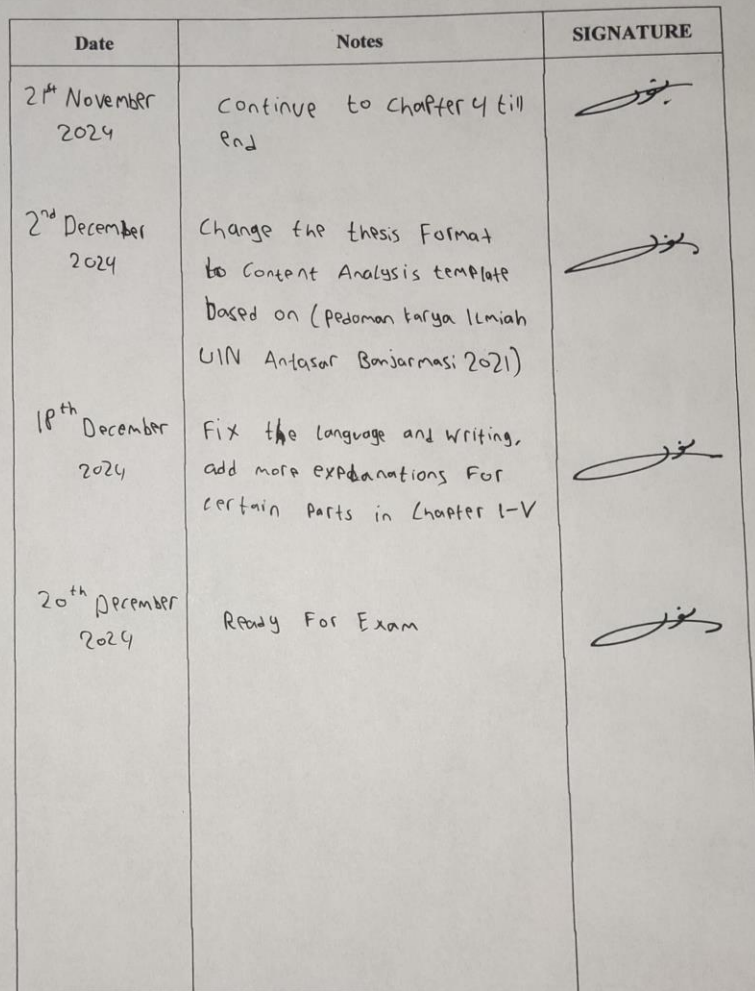 Date Notes SIGNATURE
21st November Continue to Chapter 4 till
2024 end
2nd December Change the thesis Format
2024 to Content Analysis template
based on (pedoman karya Ilmiah
UIN Antasar Banjarmasi 2021)
18th December Fix the language and writing,
2024 add more expdanations For
certain parts in Chapter I-V
20th December Ready For Exam
2024